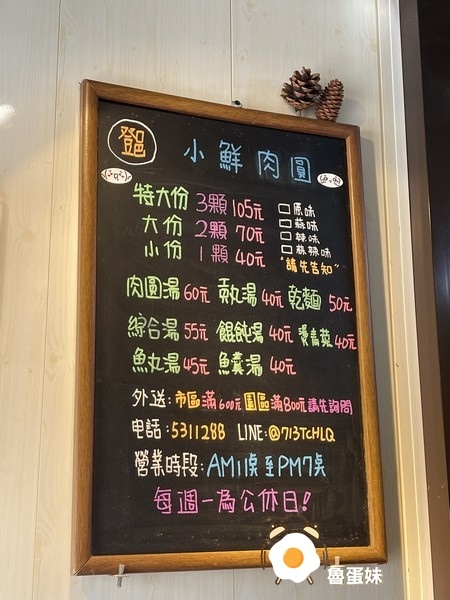 鄧 小鮮肉圓
特大份 3顆 105元 □原味
□蒜味
大份 2顆 70元 □辣味
小份 1顆 40元 □麻辣味
"請先告知"
肉圓湯60元 貢丸湯40元 乾麵50元
綜合湯55元 餛飩湯40元 燙青菜40元
魚丸湯45元 魚羹湯40元
外送:市區滿600元 園區滿800元請先詢問
电話:5311288 LINE:@713TCHLQ
營業時段:AM11点至PM7点
每週一為公休日!
魯蛋妹